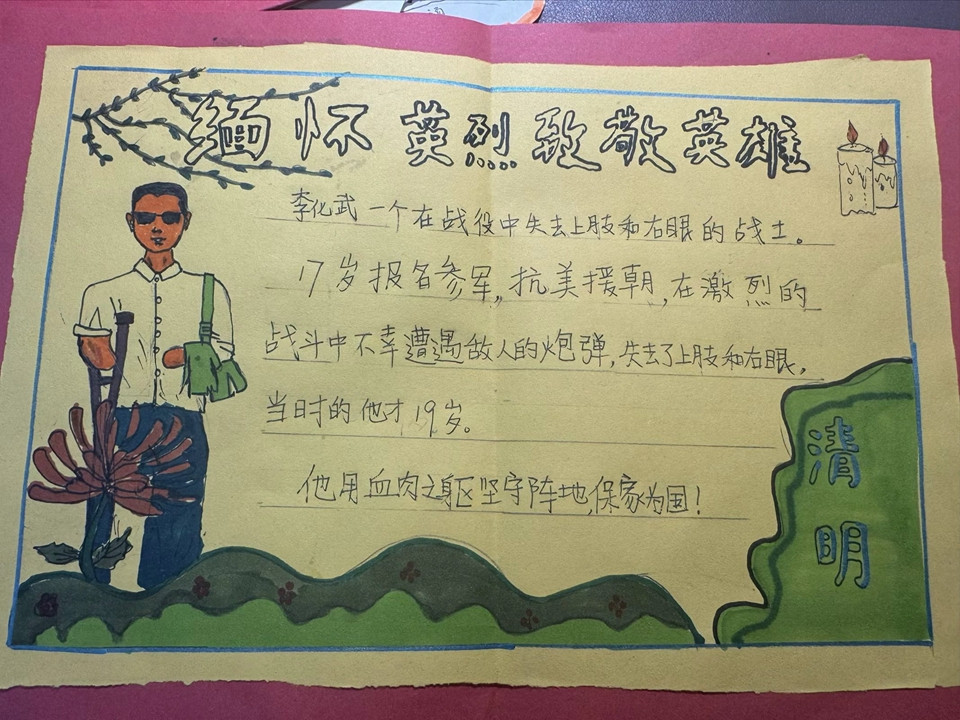 緬怀英烈致敬英雄
李化武一个在战役中失去上肢和右眼的战士。
17岁报名参军,,抗美援朝,在激烈的
战斗中不幸遭遇敌人的炮弹,失去了上肢和右眼,
当日时的他才19岁。
他用血肉之躯坚守阵地,保家为国!
清明